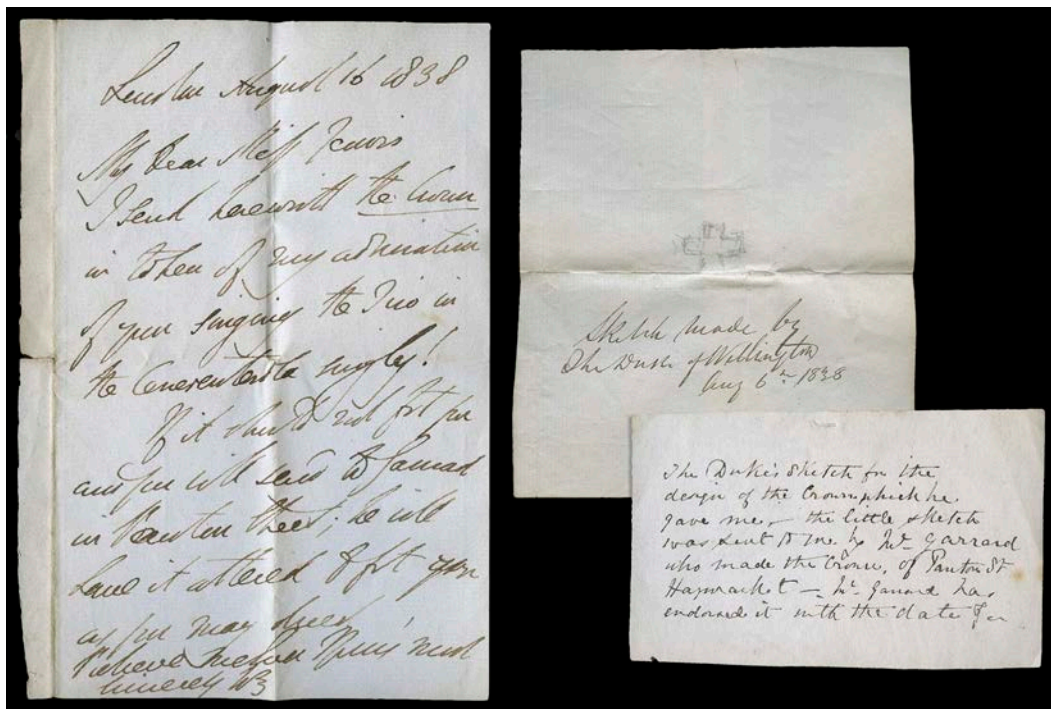 London August 16 1838
My Dear Miss Jervis
I send herewith the Crown
in token of my admiration
of your singing the Trio in
the Cenerentola singly!
If it should not fit you
and you will send to Garrard
in Panton Street; he will
have it altered & fit you
as you may direct
Believe me Yours most
sincerely W
Sketch made by
The Duke of Wellington
Aug 6th 1838
The Duke's sketch for the
design of the Crown which he
gave me – the little sketch
was sent to me by Mr Garrard
who made the Crown, of Panton St
Haymarket – Mr Garrard has
endorsed it with the date